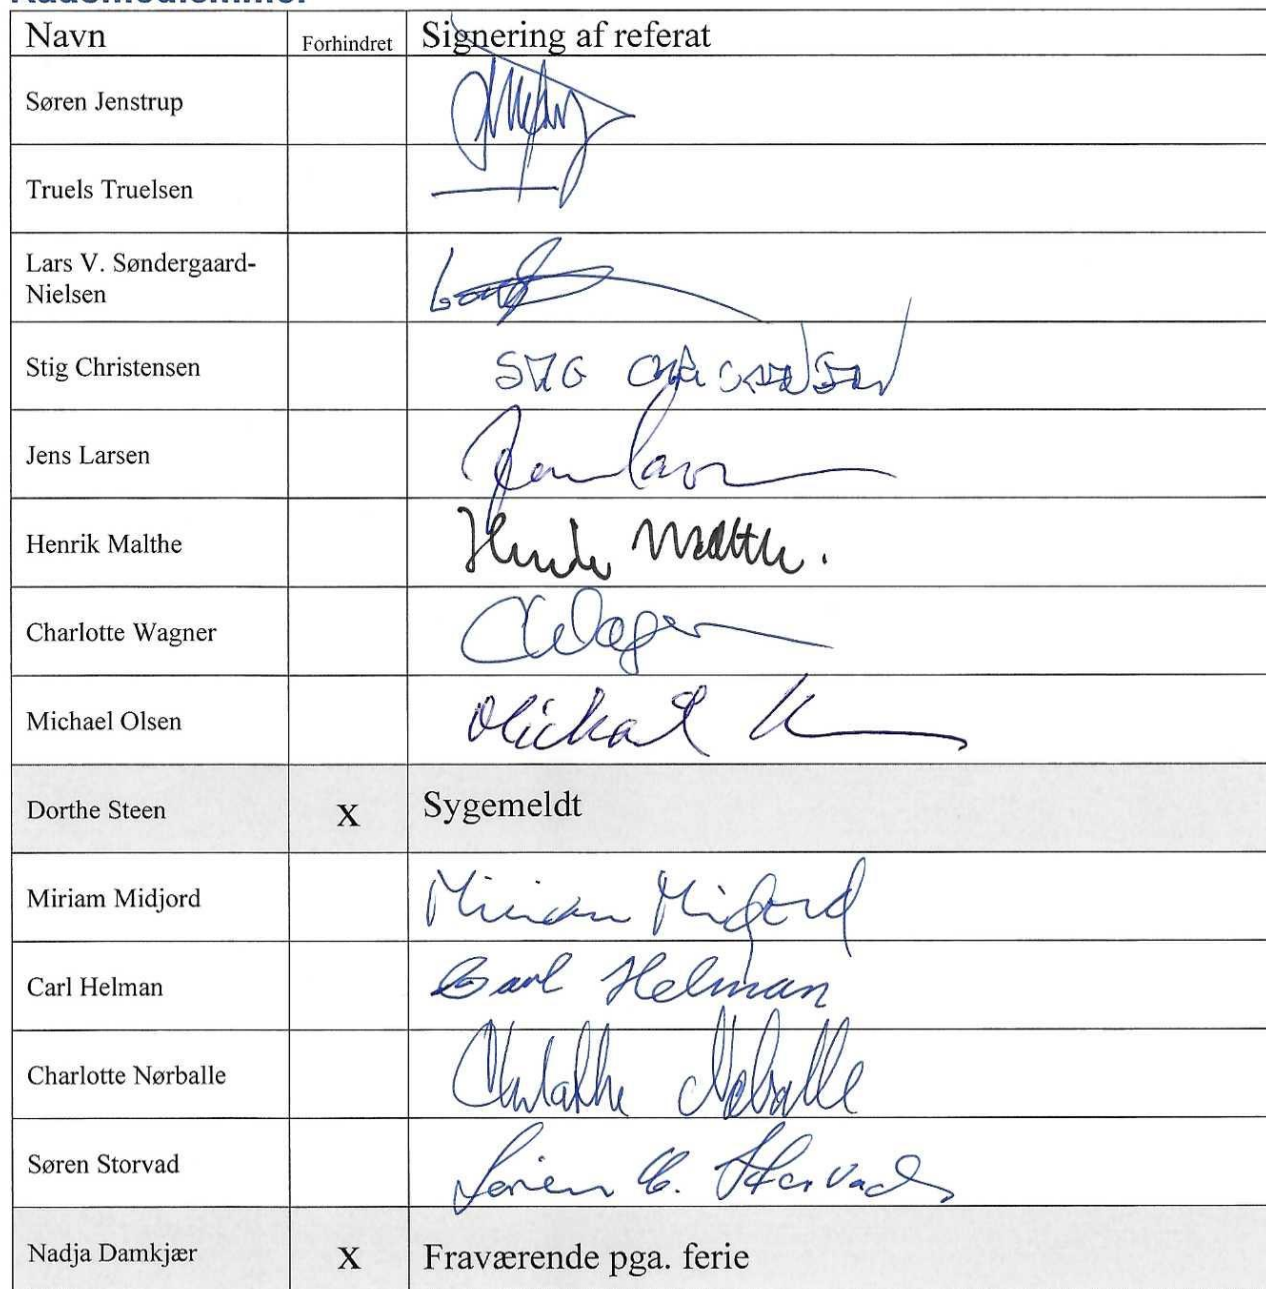 Navn Forhindret Signering af referat
Søren Jenstrup
Truels Truelsen
Lars V. Søndergaard-
Nielsen
Stig Christensen
Jens Larsen
Henrik Malthe Henrik Malthe.
Charlotte Wagner
Michael Olsen Michael
Dorthe Steen X Sygemeldt
Miriam Midjord Miriam Midjord
Carl Helman Carl Helman
Charlotte Nørballe Charlotte Nørballe
Søren Storvad Søren C. Storvad
Nadja Damkjær X Fraværende pga. ferie